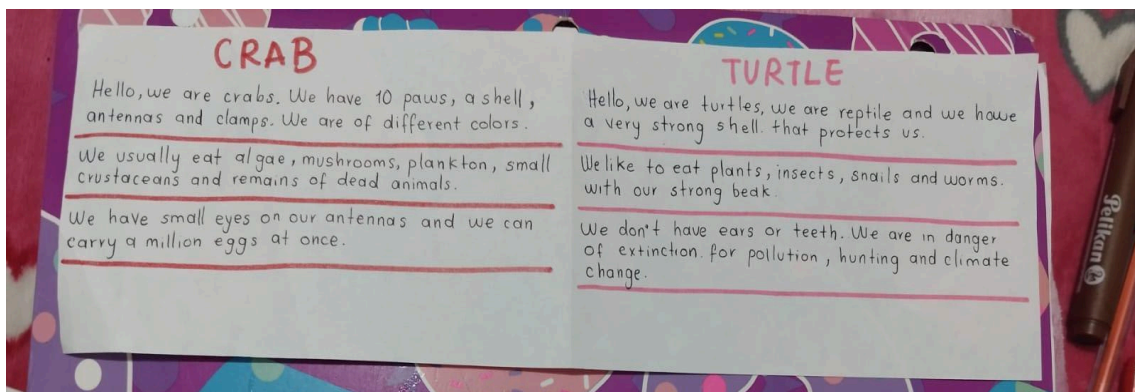 CRAB
Hello, we are crabs. We have 10 paws, a shell,
antennas and clamps. We are of different colors.
We usually eat algae, mushrooms, plankton, small
crustaceans and remains of dead animals.
We have small eyes on our antennas and we can
carry a million eggs at once.
TURTLE
Hello, we are turtles, we are reptile and we howe
a very strong shell. that protects us.
We like to eat plants, insects, snails and worms.
with our strong beak.
We don't have ears or teeth. We are in danger
of extinction. for pollution, hunting and climate
change.
Pelikan